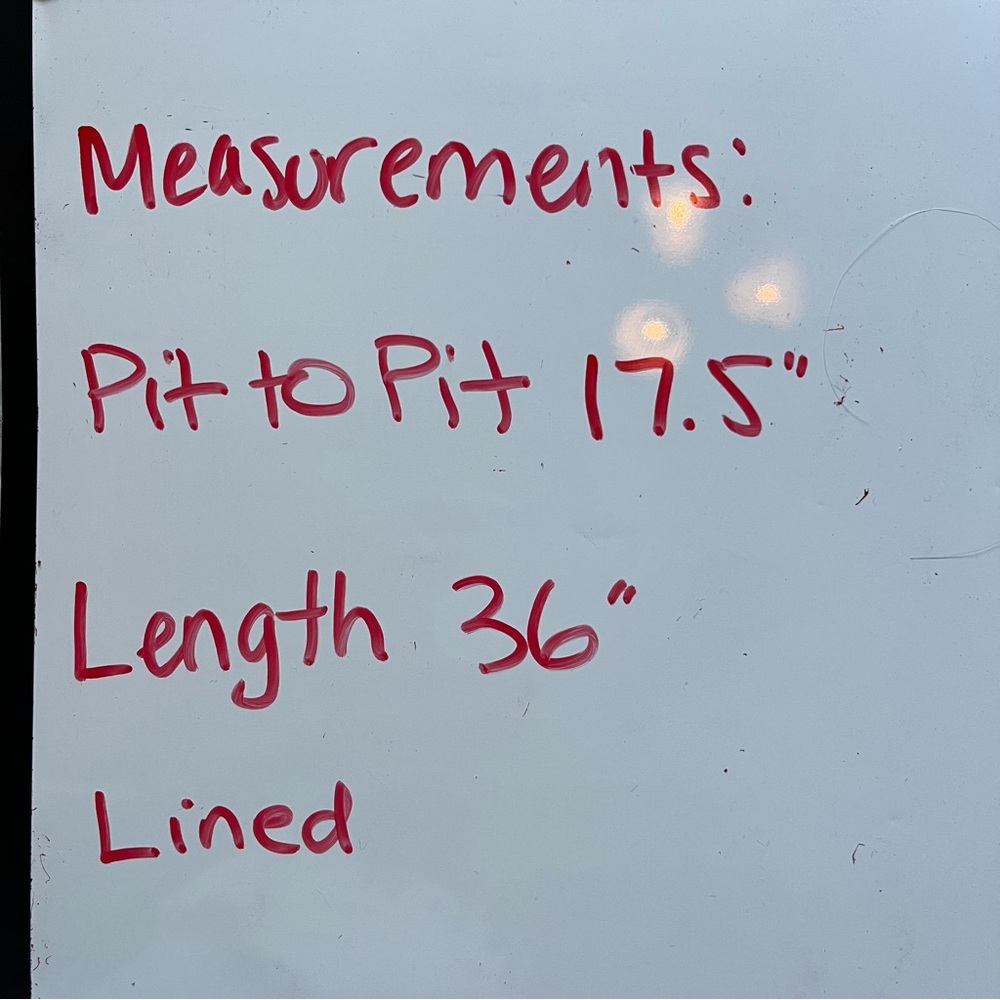 Measurements:
Pit to Pit 17.5"
Length 36"
Lined